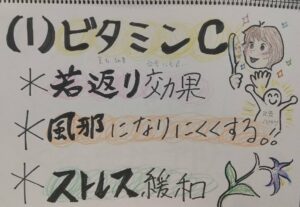 (1)ビタミンC
*若返り効果
*風那になりにくくする。!!
*ストレス緩和